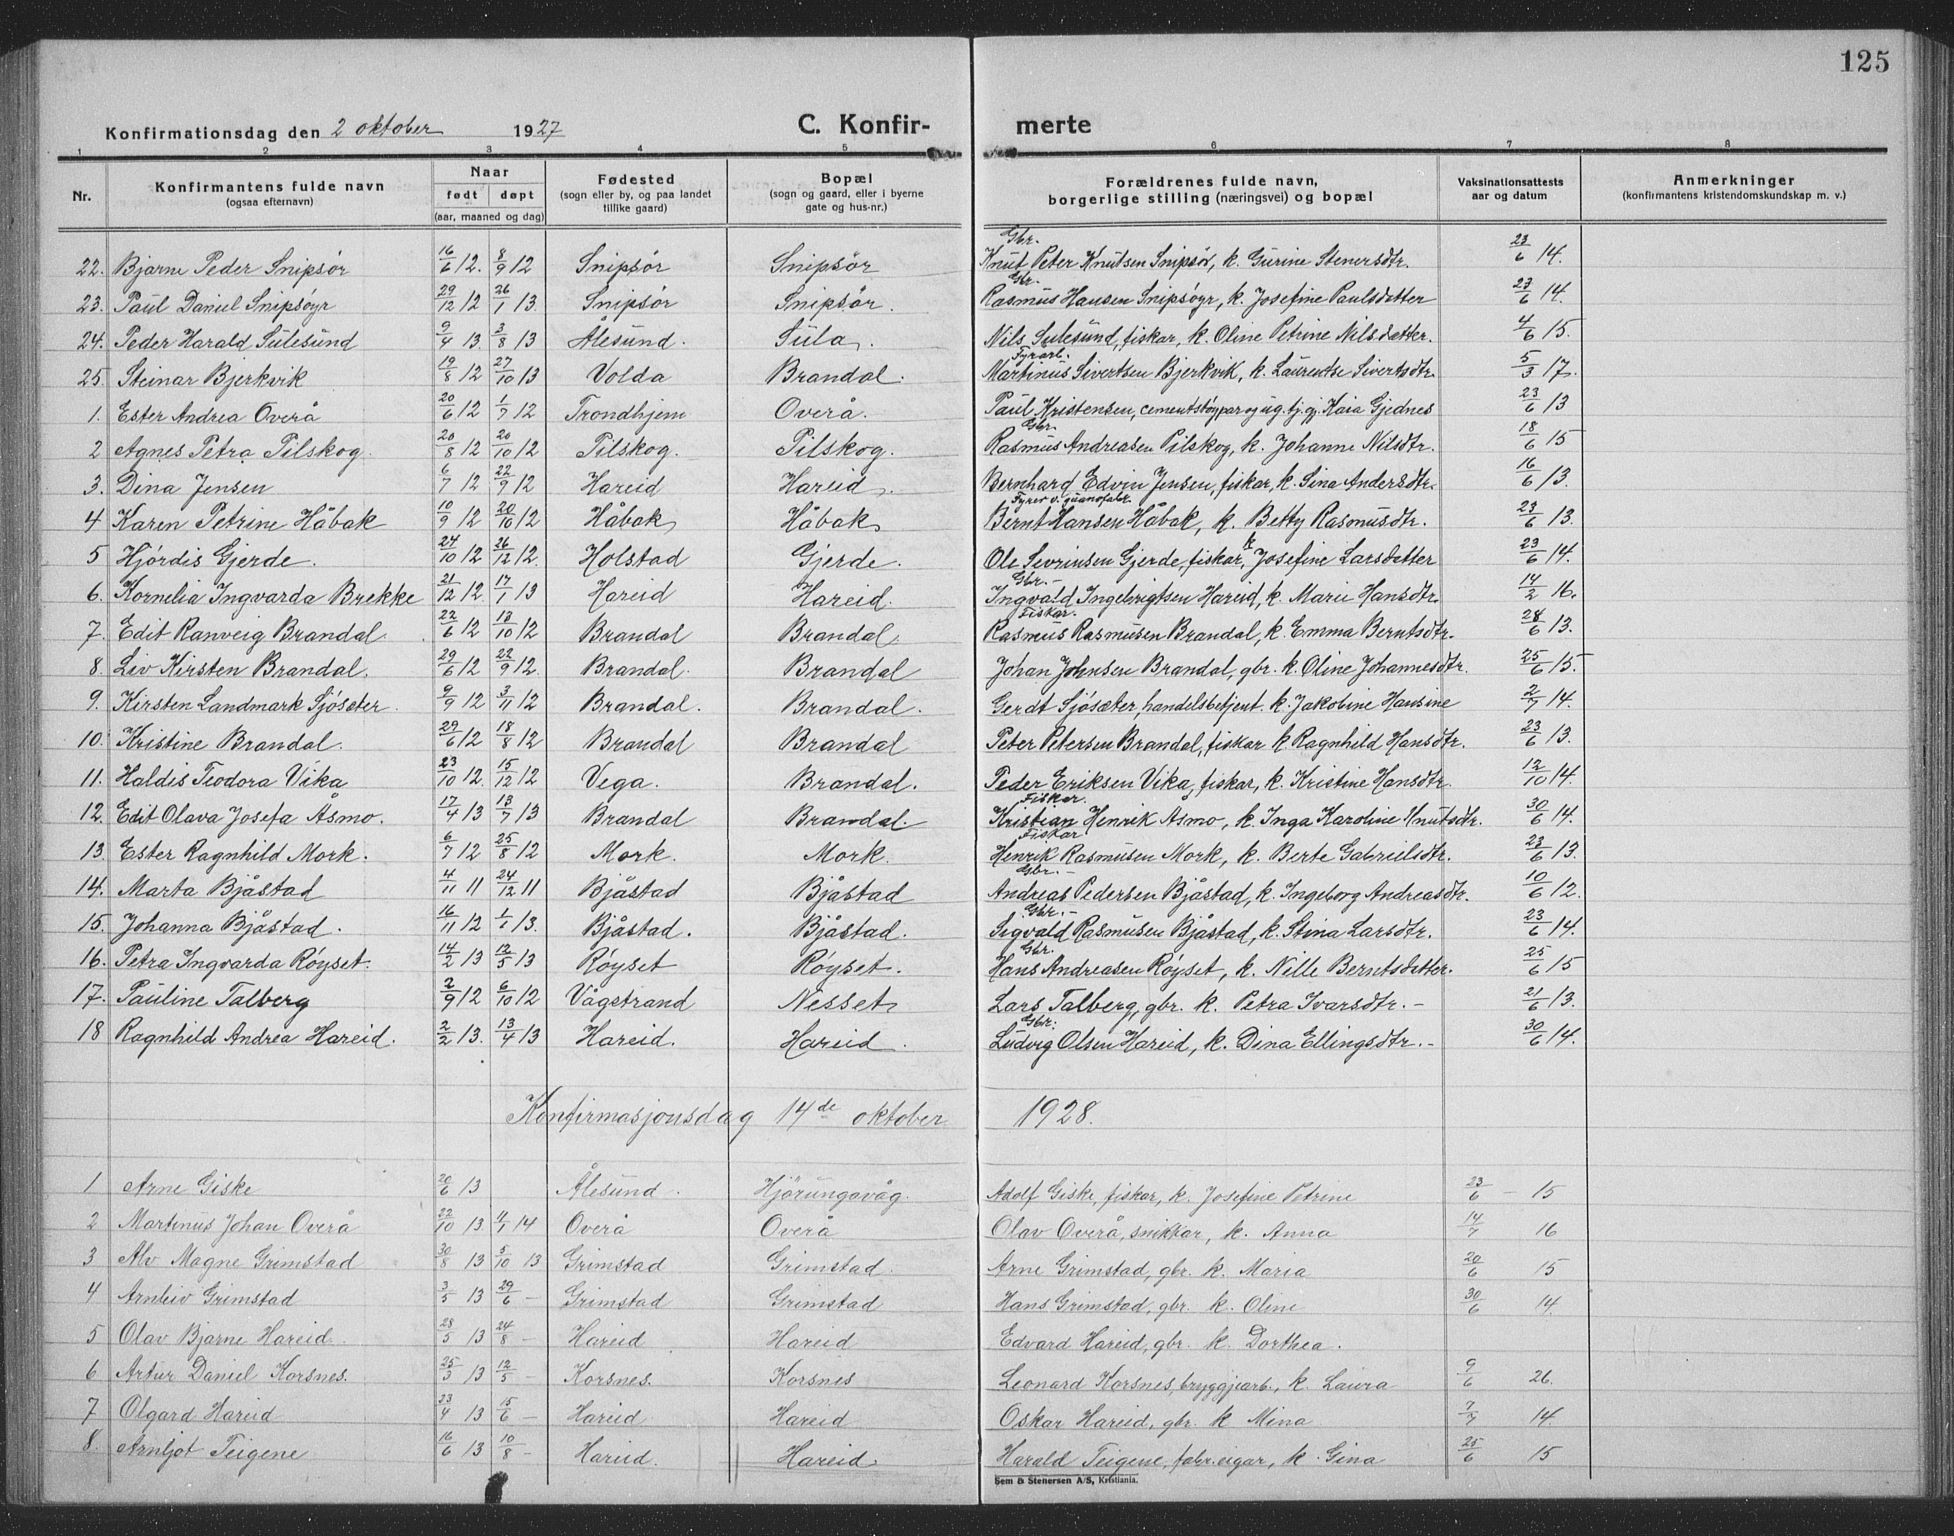 125
Konfirmationsdag den 2 oktober 1927 C. Konfir- merte
1 2 3 4 5 6 7 8
Nr. Konfirmantens fulde navn (ogsaa efternavn) Naar født døpt (aar, maaned og dag) Fødested (sogn eller by, og paa landet tillike gaard) Bopæl (sogn og gaard, eller i byerne gate og hus-nr.) Forældrenes fulde navn, borgerlige stilling (næringsvei) og bopæl Vaksinationsattests aar og datum Anmerkninger (konfirmantens kristendomskundskap m. v.)
22. Bjarne Peder Snipsör 16/6 12. 8/9 12 Snipsör Snipsör Gbr. Knut Peter Knutsen Snipsör, k. Gurine Stenersdtr. 23/6 14.
23. Paul Daniel Snipsöyr 29/12 12 26/1 13. Snipsör Snipsör. Gbr. Rasmus Hansen Snipsöyr, k. Josefine Paulsdatter 23/6 14.
24. Peder Harald Sulesund 9/4 13. 3/8 13 Ålesund. Sula. Nils Sulesund, fiskar, k. Oline Petrine Nilsdatter. 4/6 15.
25. Steinar Bjerkvik 19/8 12 27/10 13 Volda Brandal. Fyrarb. Martinus Sivertsen Bjerkvik, k. Laurentse Sivertsdtr. 5/3 17.
1. Ester Andrea Overå 20/6 12 1/7 12 Trondhjem Overå. Paul Kristensen, cementstöypar og ug. tj. gj. Kaia Gjednes 23/6 13
2 Agnes Petra Pilskog. 20/8 12 20/10 12 Pilskog. Pilskog. Gbr. Rasmus Andreasen Pilskog, k. Johanne Nilsdtr. 18/6 15
3. Dina Jensen 6/7 12 22/9 12 Hareid Hareid. Bernhard Edvin Jensen, fiskar, k. Sina Andersdtr. 16/6 13.
4 Karen Petrine Håbak 10/9 12 20/10 12 Håbak Håbak Fyrbv. v. guanofabr. Bernt Hansen Håbak, k. Betty Rasmusdtr. 23/6 13.
5 Hjördis Gjerde. 24/10 12 26/12 12. Holstad Gjerde. Ole Sevrinsen Gjerde, fiskar, k Josefine Larsdatter 23/6 14.
6. Kornelia Ingvarda Brekke 21/12 12. 17/1 13 Hareid Hareid. Gbr.- Ingvald Ingebrigtsen Hareid, k. Marie Hansdtr. 14/2 16.
7. Edit Ranveig Brandal. 22/6 12 13/10 12 Brandal Brandal. Fiskar. Rasmus Rasmusen Brandal, k. Emma Berntsdtr. 28/6 13.
8. Liv Kirsten Brandal. 29/6 12 22/9 12. Brandal. Brandal Johan Johnsen Brandal, gbr. k. Oline Johannesdtr. 25/6 15.
9. Kirsten Landmark Sjösæter. 9/9 12 3/11 12 Brandal. Brandal. Gerdt Sjösæter, handelsbetjent. k. Jakobine Hansine 2/7 14.
10. Kristine Brandal. 29/6 12 18/8 12 Brandal Brandal Peter Petersen Brandal, fiskar k. Ragnhild Hansdtr. 23/6 13.
11. Haldis Teodora Vika 23/10 12. 15/12 12 Vega. Brandal. Peder Eriksen Vika, fiskar, k. Kristine Hansdtr. 12/10 14.
12. Edit Olava Josefa Åsmo. 17/4 13 13/7 13 Brandal Brandal. Fiskar. Kristian Henrik Åsmo, k. Inga Karoline Knutsdtr. 30/6 14.
13. Ester Ragnhild Mork. 6/7 12 25/8 12 Mork. Mork. Fiskar Henrik Rasmusen Mork, k. Berte Gabrielsdtr. 23/6 13.
14. Marta Bjåstad 4/11 11 24/12 11 Bjåstad Bjåstad Gbr.- Andreas Pedersen Bjåstad, k. Ingeborg Andreasdtr. 10/6 12.
15. Johanna Bjåstad. 16/11 12 1/1 13. Bjåstad. Bjåstad. Gbr.- Sigvald Rasmusen Bjåstad, k. Stina Larsdtr. 23/6 14.
16. Petra Ingvarda Röyset. 14/2 13 12/5 13 Röyset Röyset. Gbr. Hans Andreasen Röyset, k. Nille Berntsdatter. 25/6 15
17. Pauline Talberg 2/9 12 6/10 12 Vågstrand Nesset Lars Talberg, gbr. k. Petra Ivarsdtr.- 21/6 13.
18 Ragnhild Andrea Hareid. 2/2 13. 13/4 13 Hareid. Hareid. Gbr. Ludvig Olsen Hareid, k. Dina Ellingsdtr.- 30/6 14.
Konfirmasjonsdag 14de oktober 1928.
1 Arne Giske 20/6 13 Ålesund. Hjörungavåg. Adolf Giske, fiskar, k. Josefine Petrine 23/6 - 15
2 Martinus Johan Overå 22/10 13 4/1 14 Overå Overå Olav Overå, snikkar, k. Anna 14/7 16
3 Alv Magne Grimstad 30/8 13 5/10 13 Grimstad Grimstad. Arne Grimstad, gbr. k. Maria 20/6 15
4 Arnleiv Grimstad 3/5 13 29/6 - Grimstad Grimstad Hans Grimstad, gbr. k. Oline 30/6 14.
5 Olav Bjarne Hareid. 28/5 13 24/8 - Hareid Hareid Edvard Hareid, gbr. k. Dorthea.
6 Artur Daniel Korsnes. 25/3 13 12/5 - Korsnes. Korsnes Leonard Korsnes, bryggjearb., k. Laura 9/6 26.
7 Olgard Hareid 23/4 13 15/6 - Hareid Hareid Oskar Hareid, gbr. k Mina 7/7 14.
8. Arnljot Teigene 16/6 13 10/8 - Hareid. Hareid. Harald Teigene, fabr.eigar, k. Gina 25/6 15
Sem & Stenersen A/S, Kristiania.